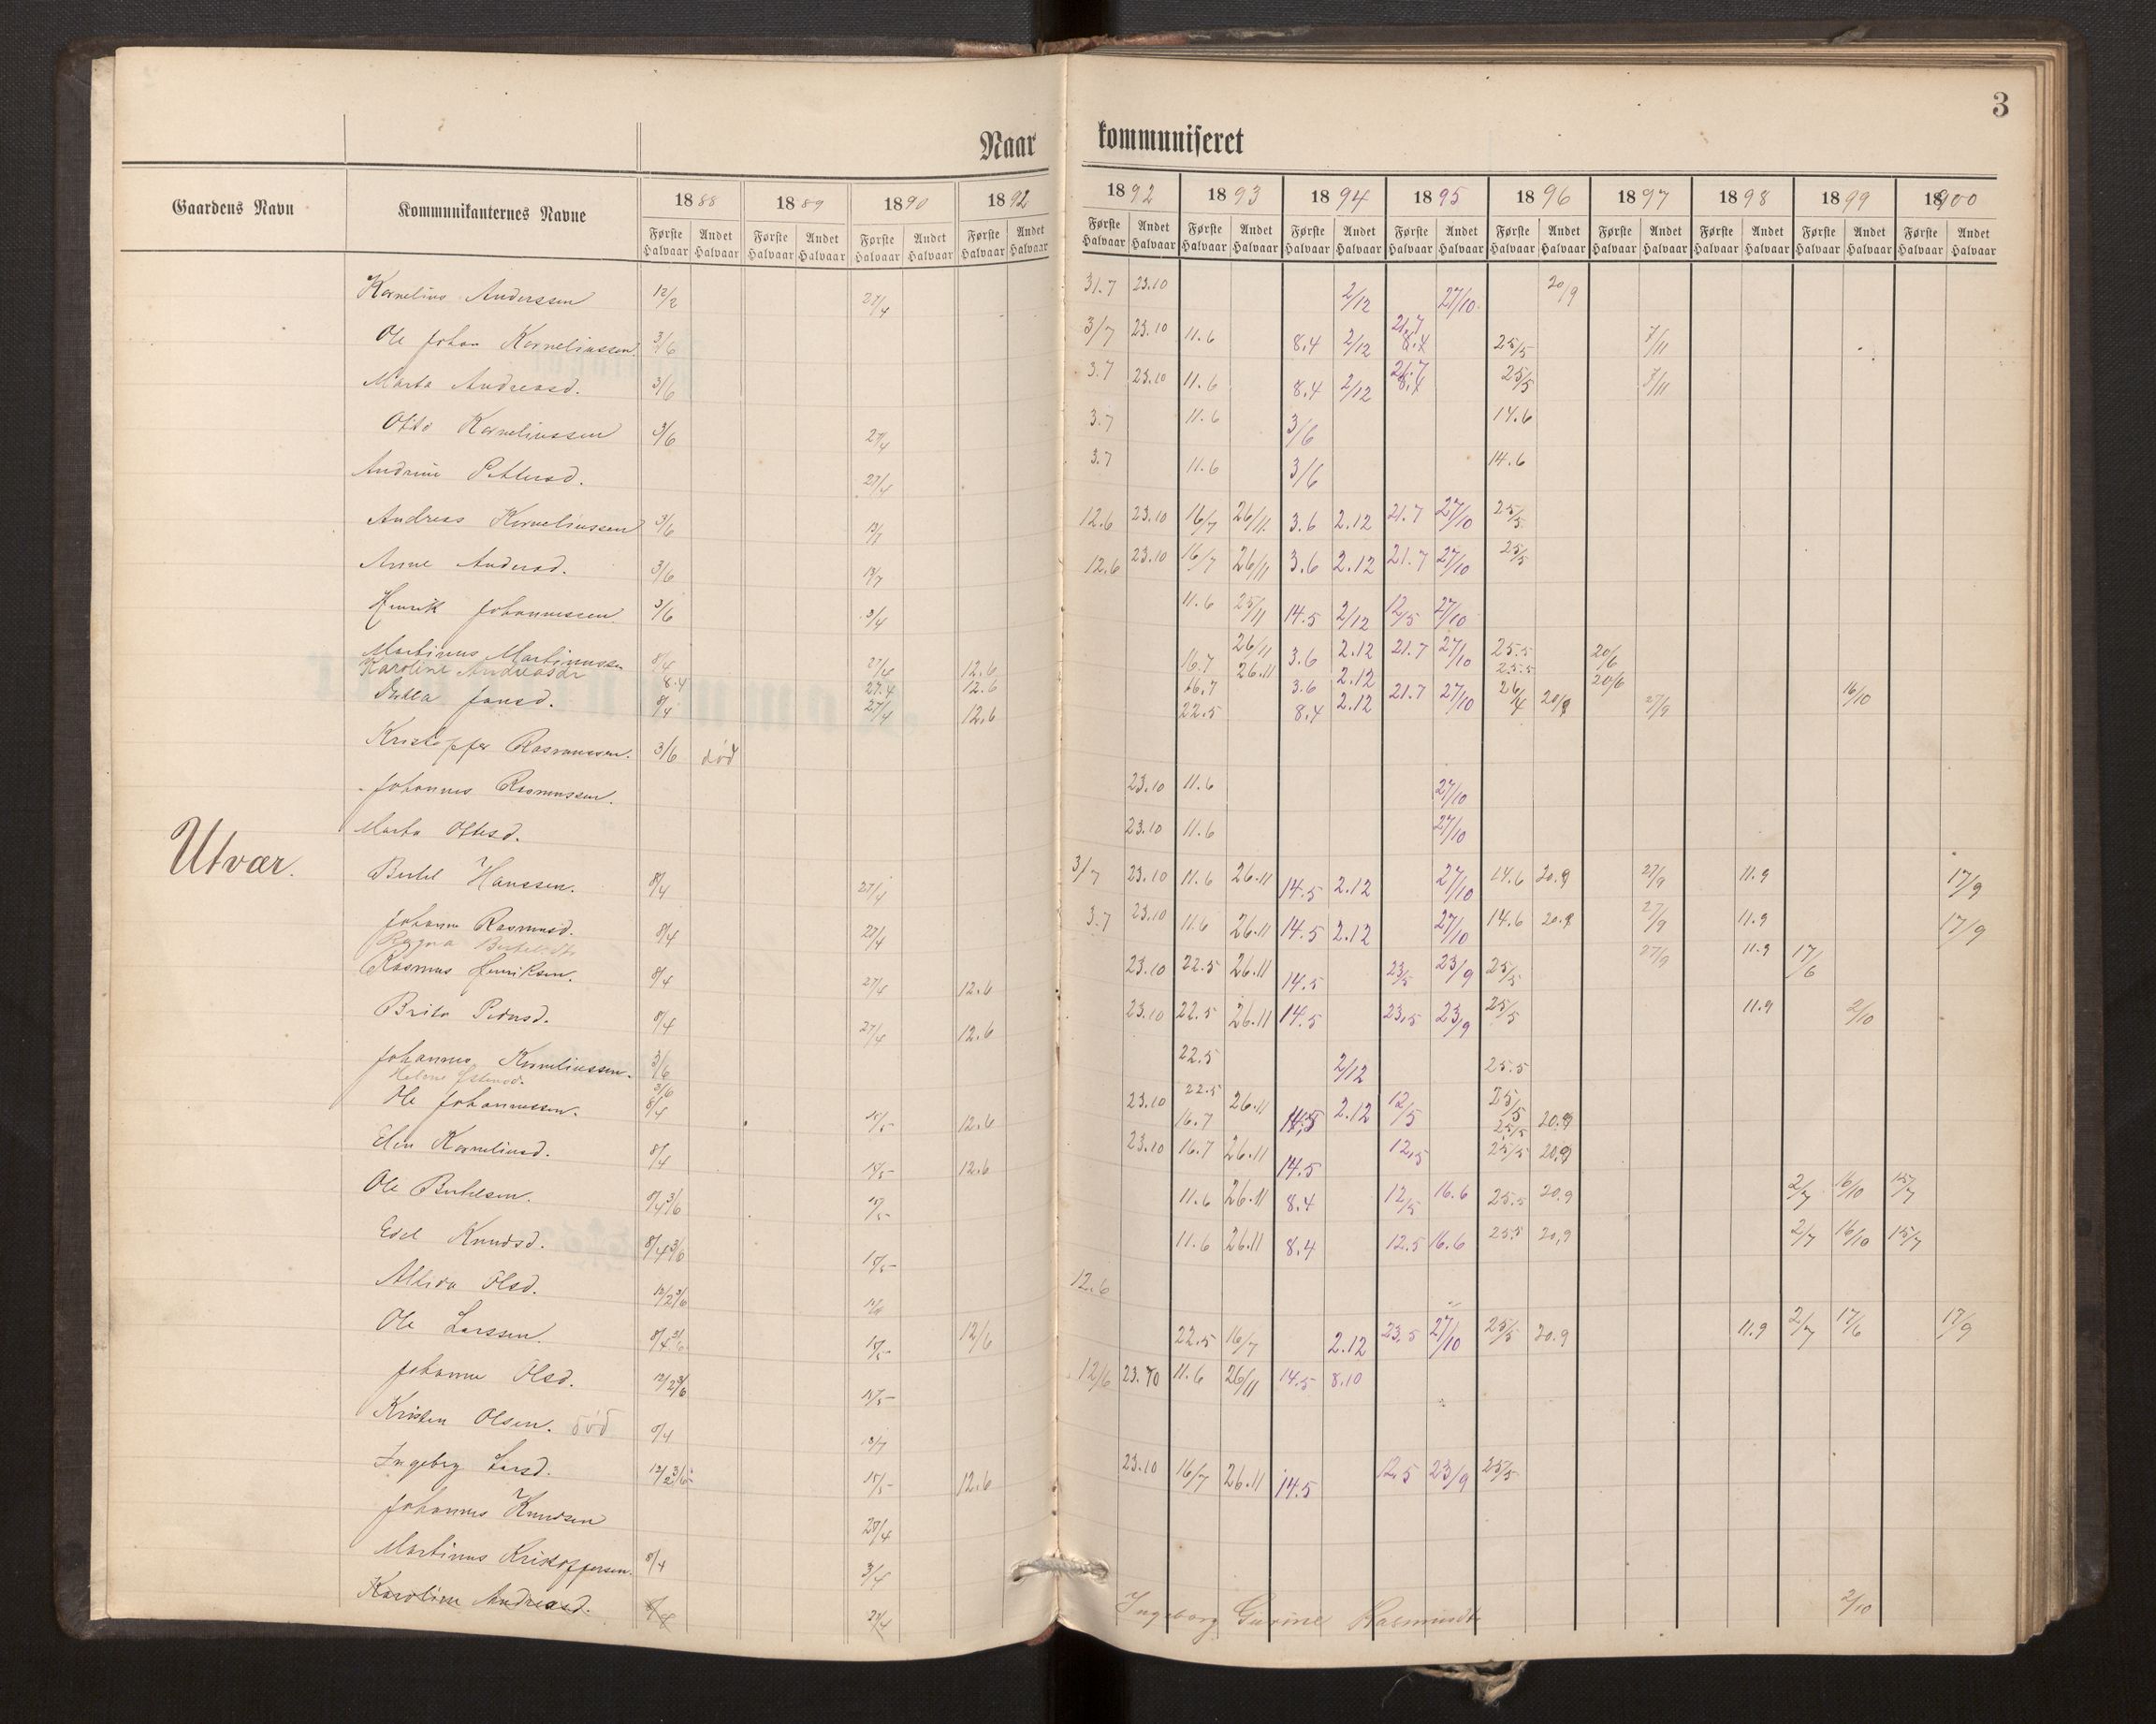 3
Naar kommuniseret
Gaardens Navn Kommunikanternes Navne 1888 1889 1890 1892 1892 1893 1894 1895 1896 1897 1898 1899 1900
Første Halvaar Andet Halvaar Første Halvaar Andet Halvaar Første Halvaar Andet Halvaar Første Halvaar Andet Halvaar Første Halvaar Andet Halvaar Første Halvaar Andet Halvaar Første Halvaar Andet Halvaar Første Halvaar Andet Halvaar Første Halvaar Andet Halvaar Første Halvaar Andet Halvaar Første Halvaar Andet Halvaar Første Halvaar Andet Halvaar Første Halvaar Andet Halvaar
Kornelius Anderssen 12/2 27/4 31.7 23.10 2/12 27/10 20/9
Ole Johan Korneliussen 3/6 3/7 23.10 11.6 8.4 2/12 21.7 8.4 25/5 7/11
Marta Andreasd. 3/6 3.7 23.10 11.6 8.4 2/12 21.7 8.4 25/5 7/11
Otto Korneliussen 3/6 27/4 3.7 11.6 3/6 14.6
Andrine Pettersd. 27/4 3.7 11.6 3/6 14.6
Andreas Korneliussen 3/6 12.6 23.10 16/7 26/11 3.6 2.12 21.7 27/10 25/5
Anne Andersd. 3/6 12.6 23.10 16/7 26/11 3.6 2.12 21.7 27/10 25/5
Henrik Johannessen 3/6 3/4 11.6 25/11 14.5 2/12 12/5 27/10
Martinus Martinussen 8/4 27/4 12.6 16.7 26/11 3.6 2.12 21.7 27/10 25.5 20/6
Karoline Andreasdr 8.4 27.4 12.6 16.7 26.11 3.6 2.12 25.5 20/6
Jonsd. 8/4 27/4 12.6 22.5 8.4 2.12 21.7 27/10 26/4 20/9 27/9 16/10
Kristoffer Rasmussen. 3/6 død
Johannes Rasmussen. 23.10 11.6 27/10
Marta Ottesd. 23.10 11.6 27/10
Utvær.
Bertel Hanssen. 8/4 27/4 3/7 23.10 11.6 26.11 14.5 2.12 27/10 14.6 20.9 27/9 11.9 17/9
Johanne Rasmusd. 8/4 27/4 3.7 23.10 11.6 26.11 14.5 2.12 27/10 14.6 20.9 27/9 11.9 17/9
Ragna Bertelsdtr 27/9 11.9 17/6
Rasmus Henriksen. 8/4 27/4 12.6 23.10 22.5 26.11 14.5 23/5 23/9 25/5
Brita Pedersd. 8/4 27/4 12.6 23.10 22.5 26.11 14.5 23.5 23/9 25/5 11.9 2/10
Johannes Korneliussen. 3/6 22.5 2/12 25.5
Helene 3/6 22.5 25/5
Ole Johannessen. 8/4 15/5 12.6 23.10 16.7 26.11 14.5 2.12 12/5 25/5 20.9
Elen Korneliusd. 8/4 15/5 12.6 23.10 16.7 26.11 14.5 12.5 25/5 20.9
Ole Bertelsen. 8/4 3/6 15/5 11.6 26.11 8.4 12/5 16.6 25.5 20.9 2/7 16/10 15/7
Knudsd. 8/4 3/6 15/5 11.6 26.11 8.4 12.5 16.6 25.5 20.9 2/7 16/10 15/7
Olsd. 12/2 3/6 12.6
Ole Larssen. 8/4 3/6 15/5 12/6 22.5 16/7 2.12 23.5 27/10 25/5 20.9 11.9 2/7 17/6 17/9
Johanne Olsd. 12/2 3/6 15/5 12/6 23.10 11.6 26/11 14.5 8.10
Kristen Olsen. død 8/4 13/7
Ingebrg Larsd. 12/2 3/6 15/5 12.6 23.10 16/7 26.11 14.5 12.5 23/9 25/5
Johannes Knudsen 27/4
Martinus Kristoffersen. 8/4 3/4
Karoline Andreasd. 8/4 27/4
Ingeborg Gurine Rasmusdtr 2/10